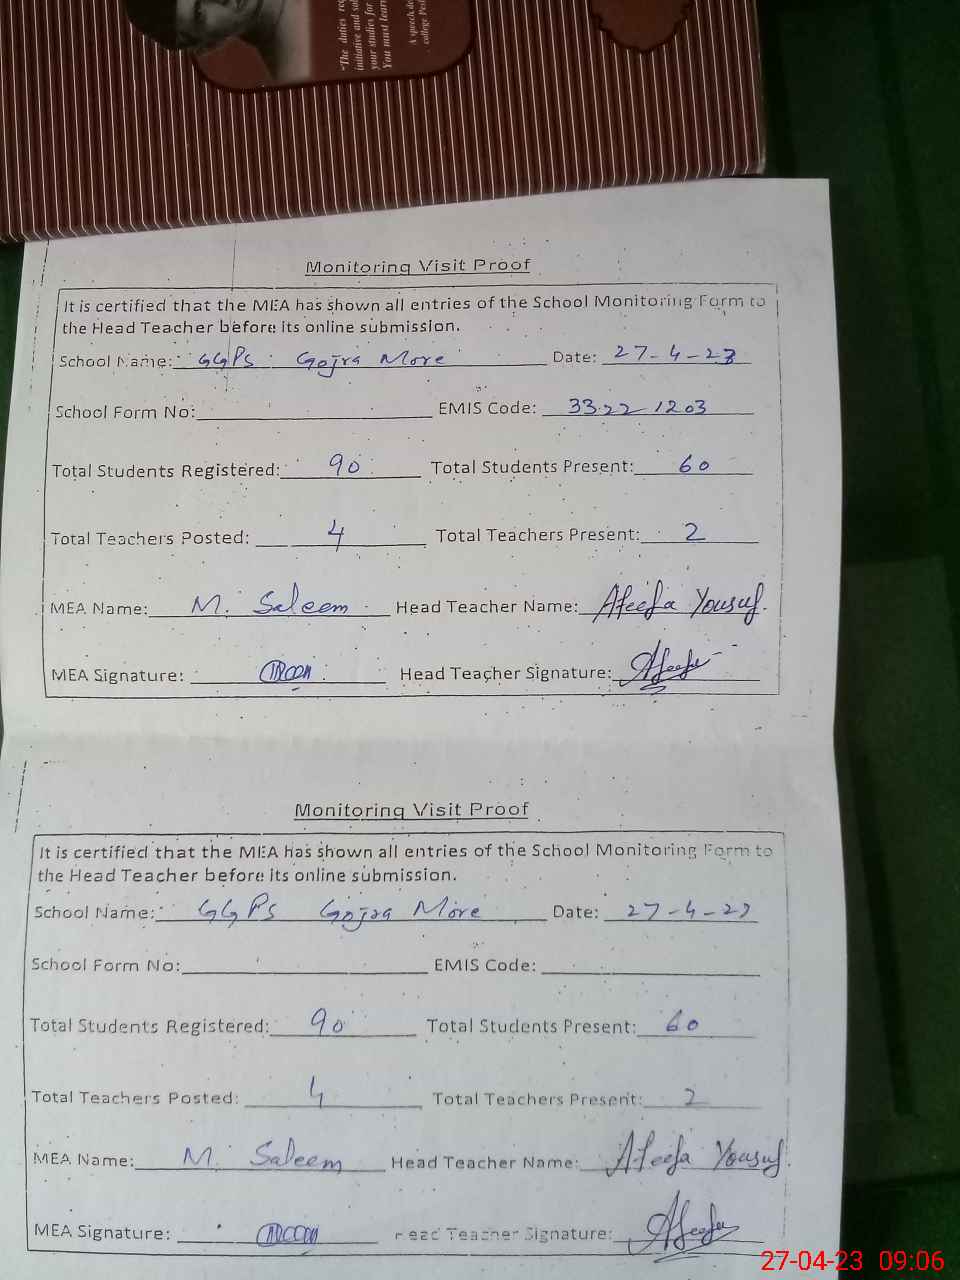 "The duties
initiative and
your studies for
You must lear
A speech
college
Monitoring Visit Proof
It is certified that the MEA has shown all entries of the School Monitoring Form to
the Head Teacher before its online submission.
School Name: GGPS Gojra More Date: 27-4-23
School Form No: EMIS Code: 33221203
Total Students Registered: 90 Total Students Present: 60
Total Teachers Posted: 4 Total Teachers Present: 2
MEA Name: M. Saleem Head Teacher Name: Afeefa Yousuf.
MEA Signature: Head Teacher Signature: Afeefa
Monitoring Visit Proof
It is certified that the MEA has shown all entries of the School Monitoring Form to
the Head Teacher before its online submission.
School Name: GGPS Gojra More Date: 27-4-23
School Form No: EMIS Code:
Total Students Registered: 90 Total Students Present: 60
Total Teachers Posted: 4 Total Teachers Present: 2
MEA Name: M. Saleem Head Teacher Name: Afeefa Yousuf.
MEA Signature: Head Teacher Signature: Afeefa
27-04-23 09:06